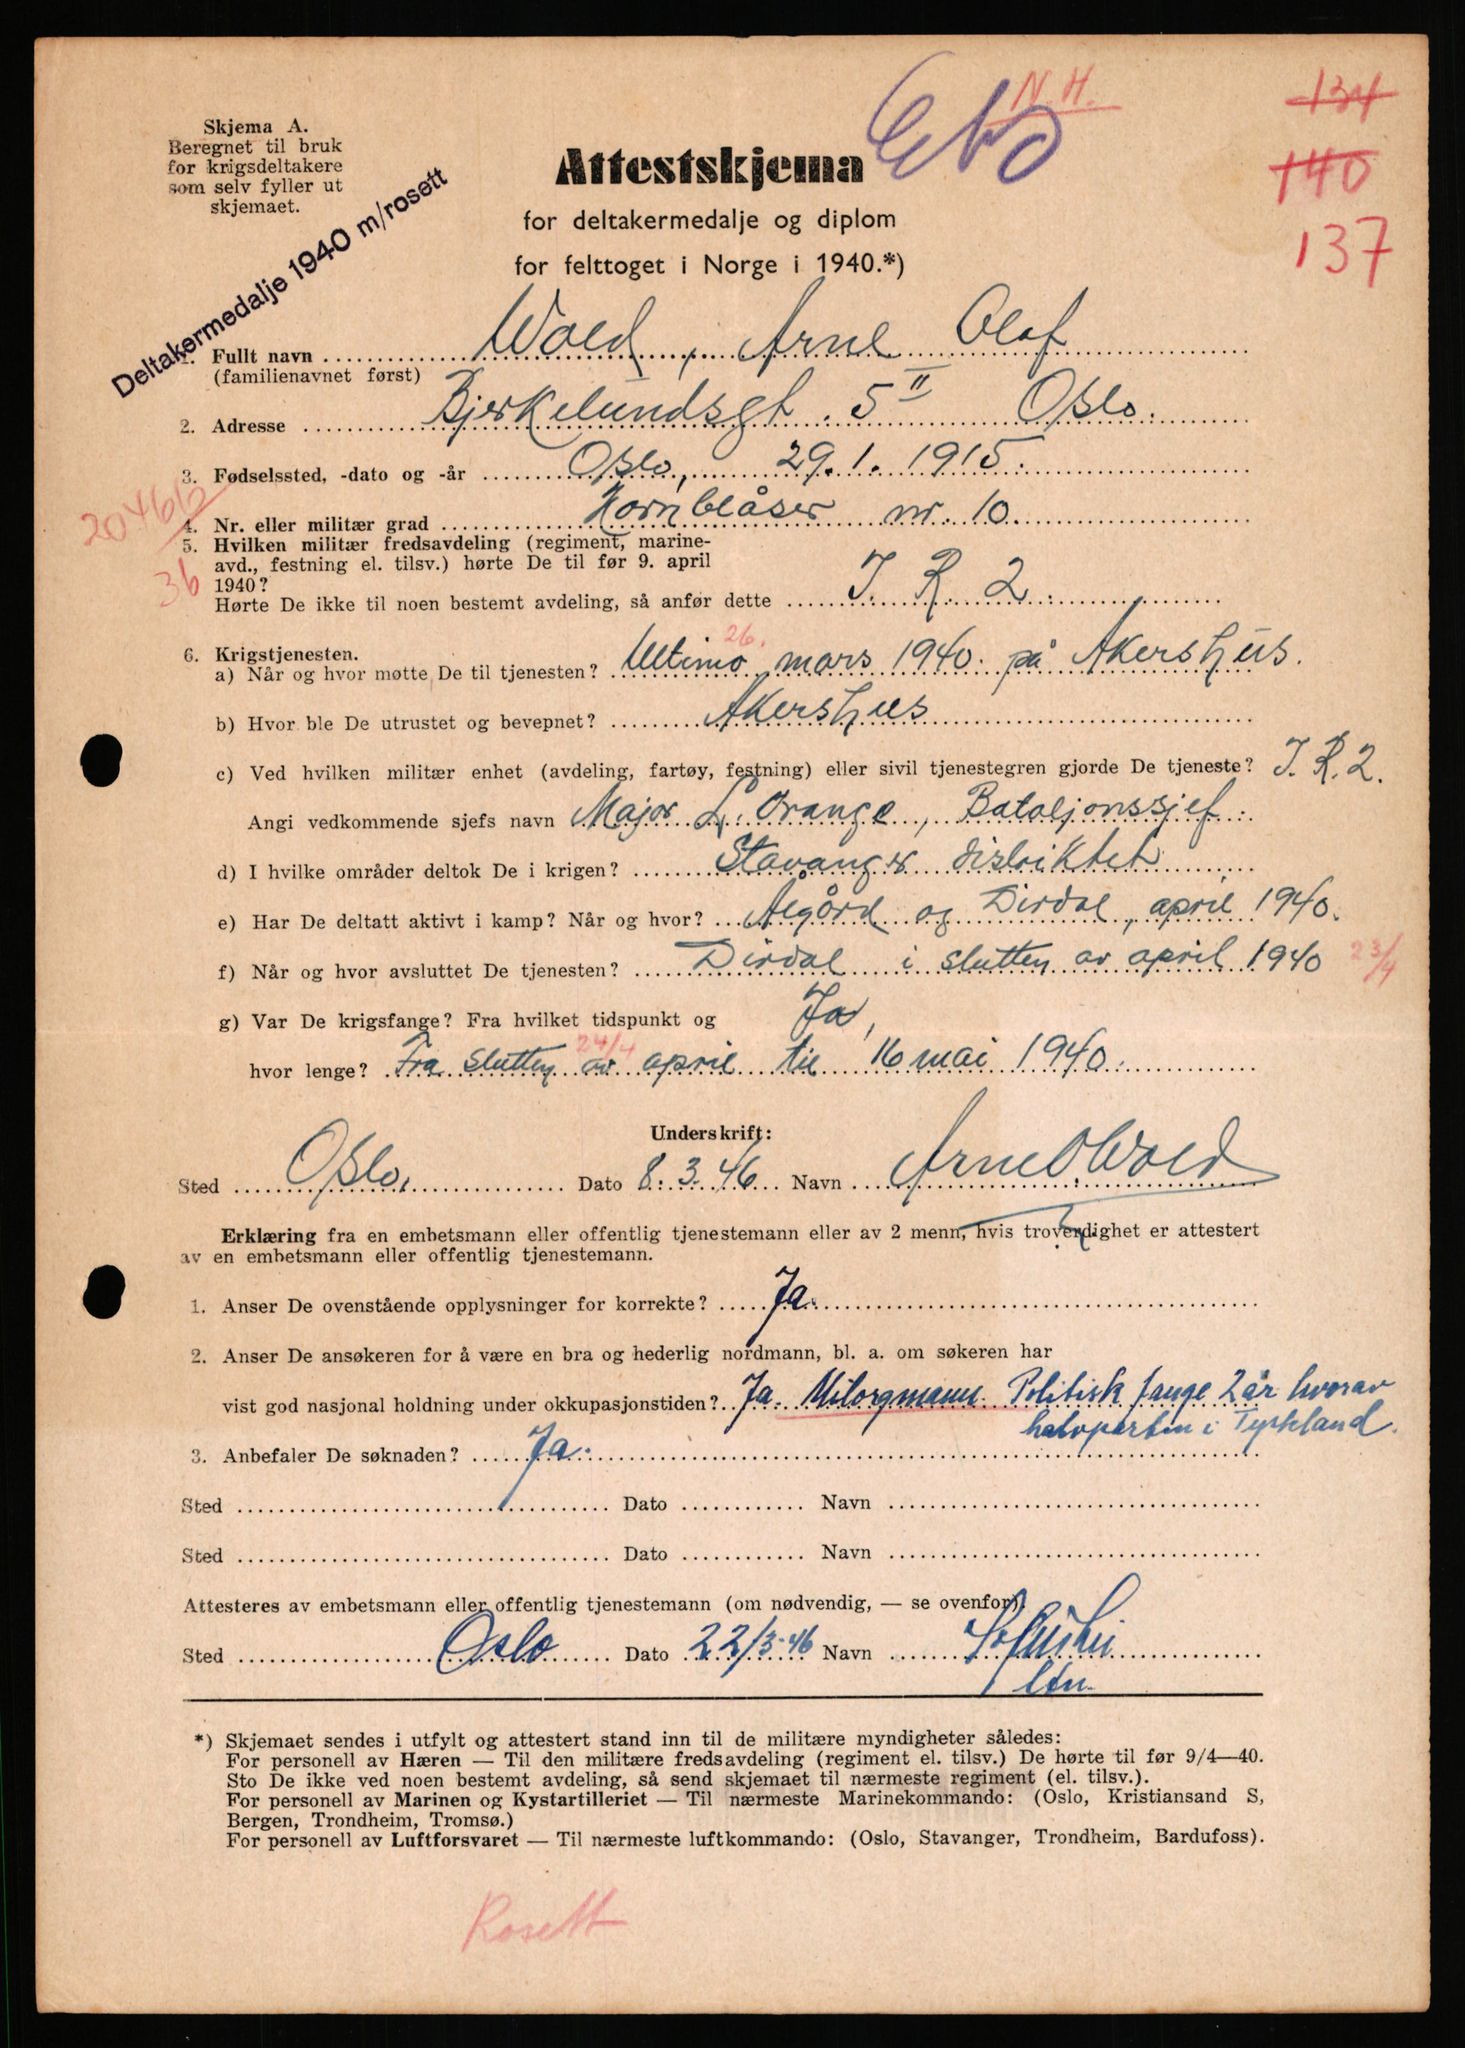 N. H.
134
140
137
Skjema A.
Beregnet til bruk
for krigsdeltakere
som selv fyller ut
skjemaet.
Deltakermedalje 1940 m/rosett
Attestskjema
for deltakermedalje og diplom
for felttoget i Norge i 1940.*)
1. Fullt navn Wold, Arne Olaf
(familienavnet først)
2. Adresse Bjerkelundsgt. 5 II Oslo.
3. Fødselssted, -dato og -år Oslo, 29.1.1915.
20466
36
4. Nr. eller militær grad Hornblåser nr. 10
5. Hvilken militær fredsavdeling (regiment, marine-
avd., festning el. tilsv.) hørte De til før 9. april
1940?
Hørte De ikke til noen bestemt avdeling, så anfør dette I. R. 2.
6. Krigstjenesten.
26.
a) Når og hvor møtte De til tjenesten? Ultimo mars 1940. på Akershus.
b) Hvor ble De utrustet og bevepnet? Akershus
c) Ved hvilken militær enhet (avdeling, fartøy, festning) eller sivil tjenestegren gjorde De tjeneste? I.R.2.
Angi vedkommende sjefs navn Major L'Orange, Bataljonssjef.
d) I hvilke områder deltok De i krigen? Stavanger distriktet
e) Har De deltatt aktivt i kamp? Når og hvor? Ålgård og Dirdal, april 1940.
f) Når og hvor avsluttet De tjenesten? Dirdal i slutten av april 1940 23/4
g) Var De krigsfange? Fra hvilket tidspunkt og Ja,
24/4
hvor lenge? Fra slutten av april til 16 mai 1940.
Underskrift:
Sted Oslo, Dato 8.3.46 Navn Arne O Wold
Erklæring fra en embetsmann eller offentlig tjenestemann eller av 2 menn, hvis troverdighet er attestert
av en embetsmann eller offentlig tjenestemann.
1. Anser De ovenstående opplysninger for korrekte? Ja.
2. Anser De ansøkeren for å være en bra og hederlig nordmann, bl. a. om søkeren har
vist god nasjonal holdning under okkupasjonstiden? Ja. Milorgmann. Politisk fange 2 år hvorav
halvparten i Tyskland.
3. Anbefaler De søknaden? Ja.
Sted Dato Navn
Sted Dato Navn
Attesteres av embetsmann eller offentlig tjenestemann (om nødvendig, — se ovenfor).
Sted Oslo Dato 22/3-46 Navn
*) Skjemaet sendes i utfylt og attestert stand inn til de militære myndigheter således:
For personell av Hæren — Til den militære fredsavdeling (regiment el. tilsv.) De hørte til før 9/4—40.
Sto De ikke ved noen bestemt avdeling, så send skjemaet til nærmeste regiment (el. tilsv.).
For personell av Marinen og Kystartilleriet — Til nærmeste Marinekommando: (Oslo, Kristiansand S,
Bergen, Trondheim, Tromsø.)
For personell av Luftforsvaret — Til nærmeste luftkommando: (Oslo, Stavanger, Trondheim, Bardufoss).
Rosett